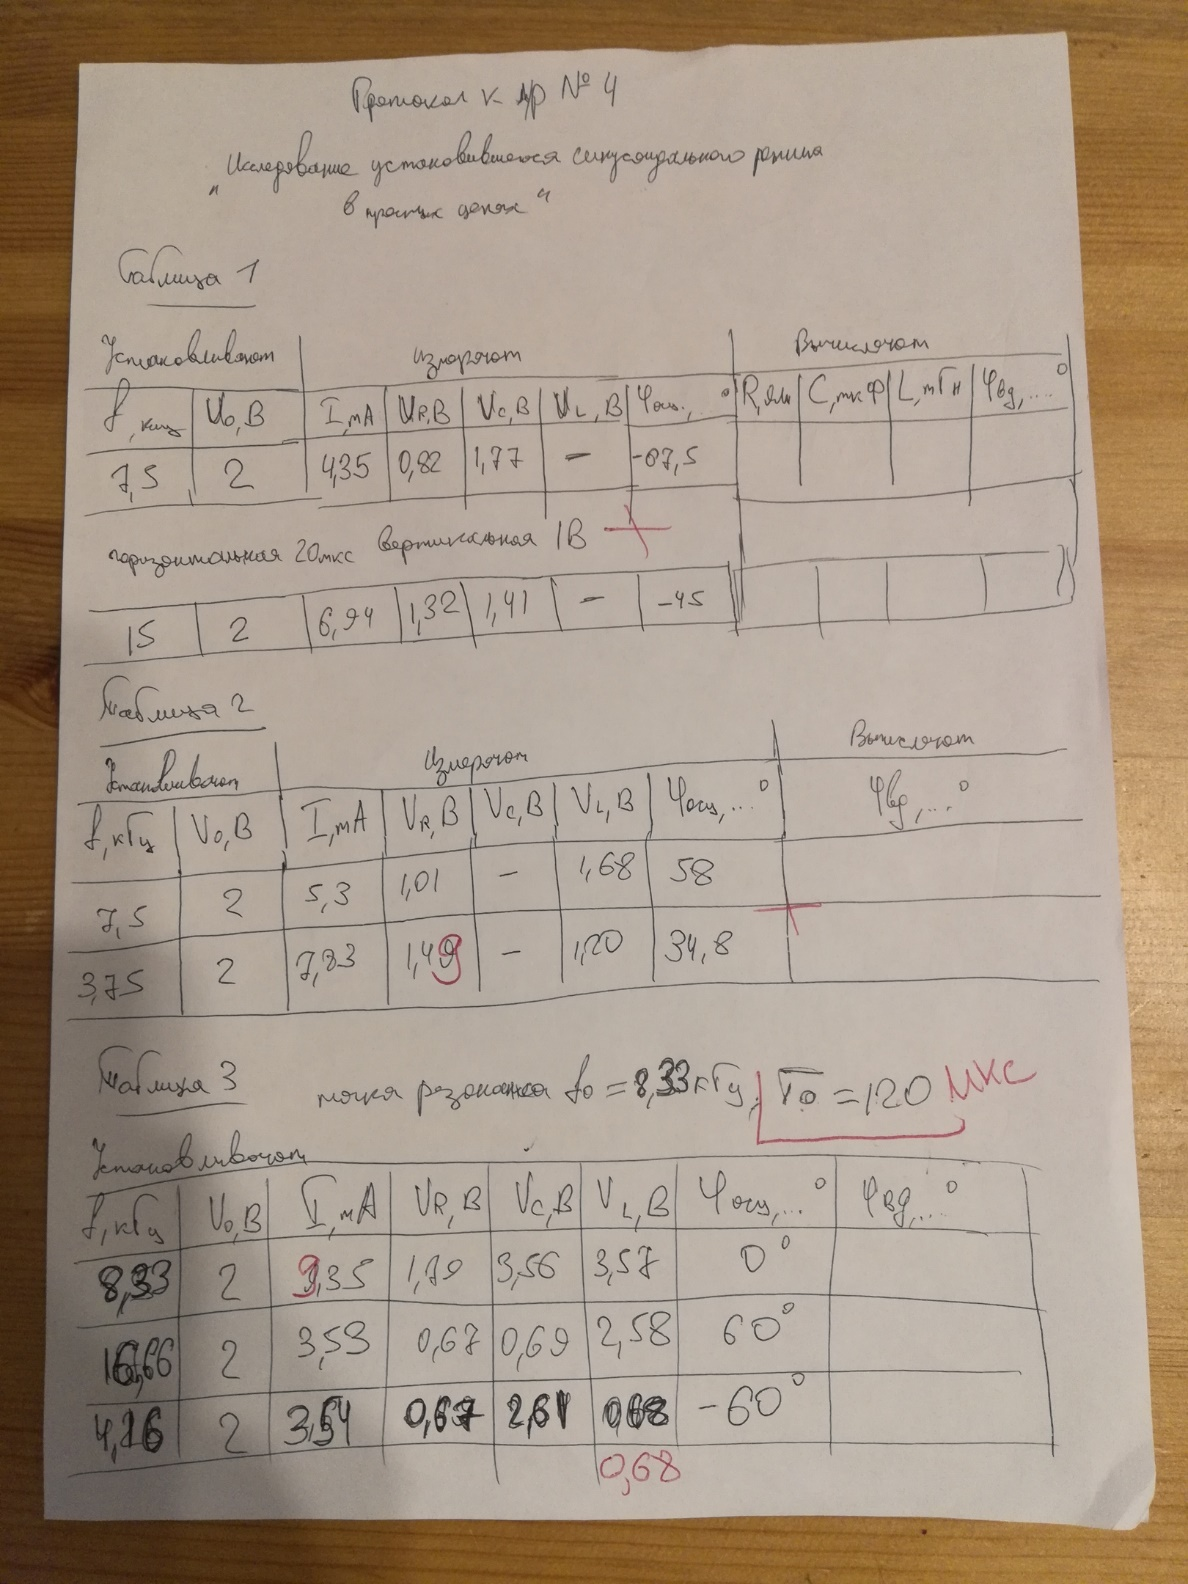 Протокол к л/р № 4
"Исследование установившегося синусоидального режима
в простых цепях"
Таблица 1
Устанавливают Измеряют Вычисляют
f, кГц U0, В I, mA UR, В UC, В UL, В φосц,...° R, Ом C, мкФ L, mГн φвд,...°
7,5 2 4,35 0,82 1,77 - -67,5
горизонтальная 20мкс вертикальная 1В
15 2 6,94 1,32 1,41 - -45
Таблица 2
Устанавливают Измеряют Вычисляют
f, кГц V0, В I, mA VR, В VC, В VL, В φосц,...° φвд,...°
7,5 2 5,3 1,01 - 1,68 58
3,75 2 7,83 1,49 - 1,20 34,8
Таблица 3 точка резонанса f0 = 8,33 кГц, T0 = 120 мкс
Устанавливают
f, кГц V0, В I, mA VR, В VC, В VL, В φосц,...° φвд,...°
8,33 2 9,35 1,79 3,56 3,57 0°
16,66 2 3,53 0,67 0,69 2,58 60°
4,16 2 3,54 0,67 2,61 0,68 -60°
0,68